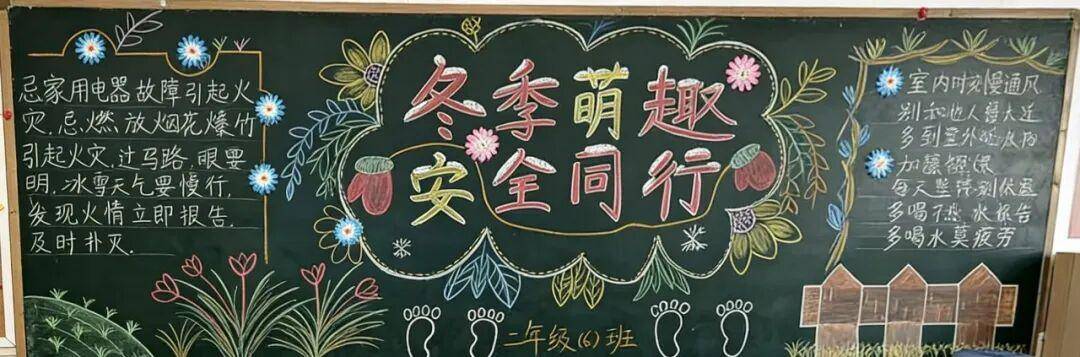 忌家用电器故障引起火
灾.忌.燃.放烟花爆竹
引起火灾,过马路,眼要
明,冰雪天气要慢行,
发现火情立即报告.
及时扑灭.
冬季萌趣
安全同行
二年级(6)班
室内时刻慢通风
别和他人靠太近
多到室外
加
每天坚持别
多喝 水报告
多喝水莫疲劳